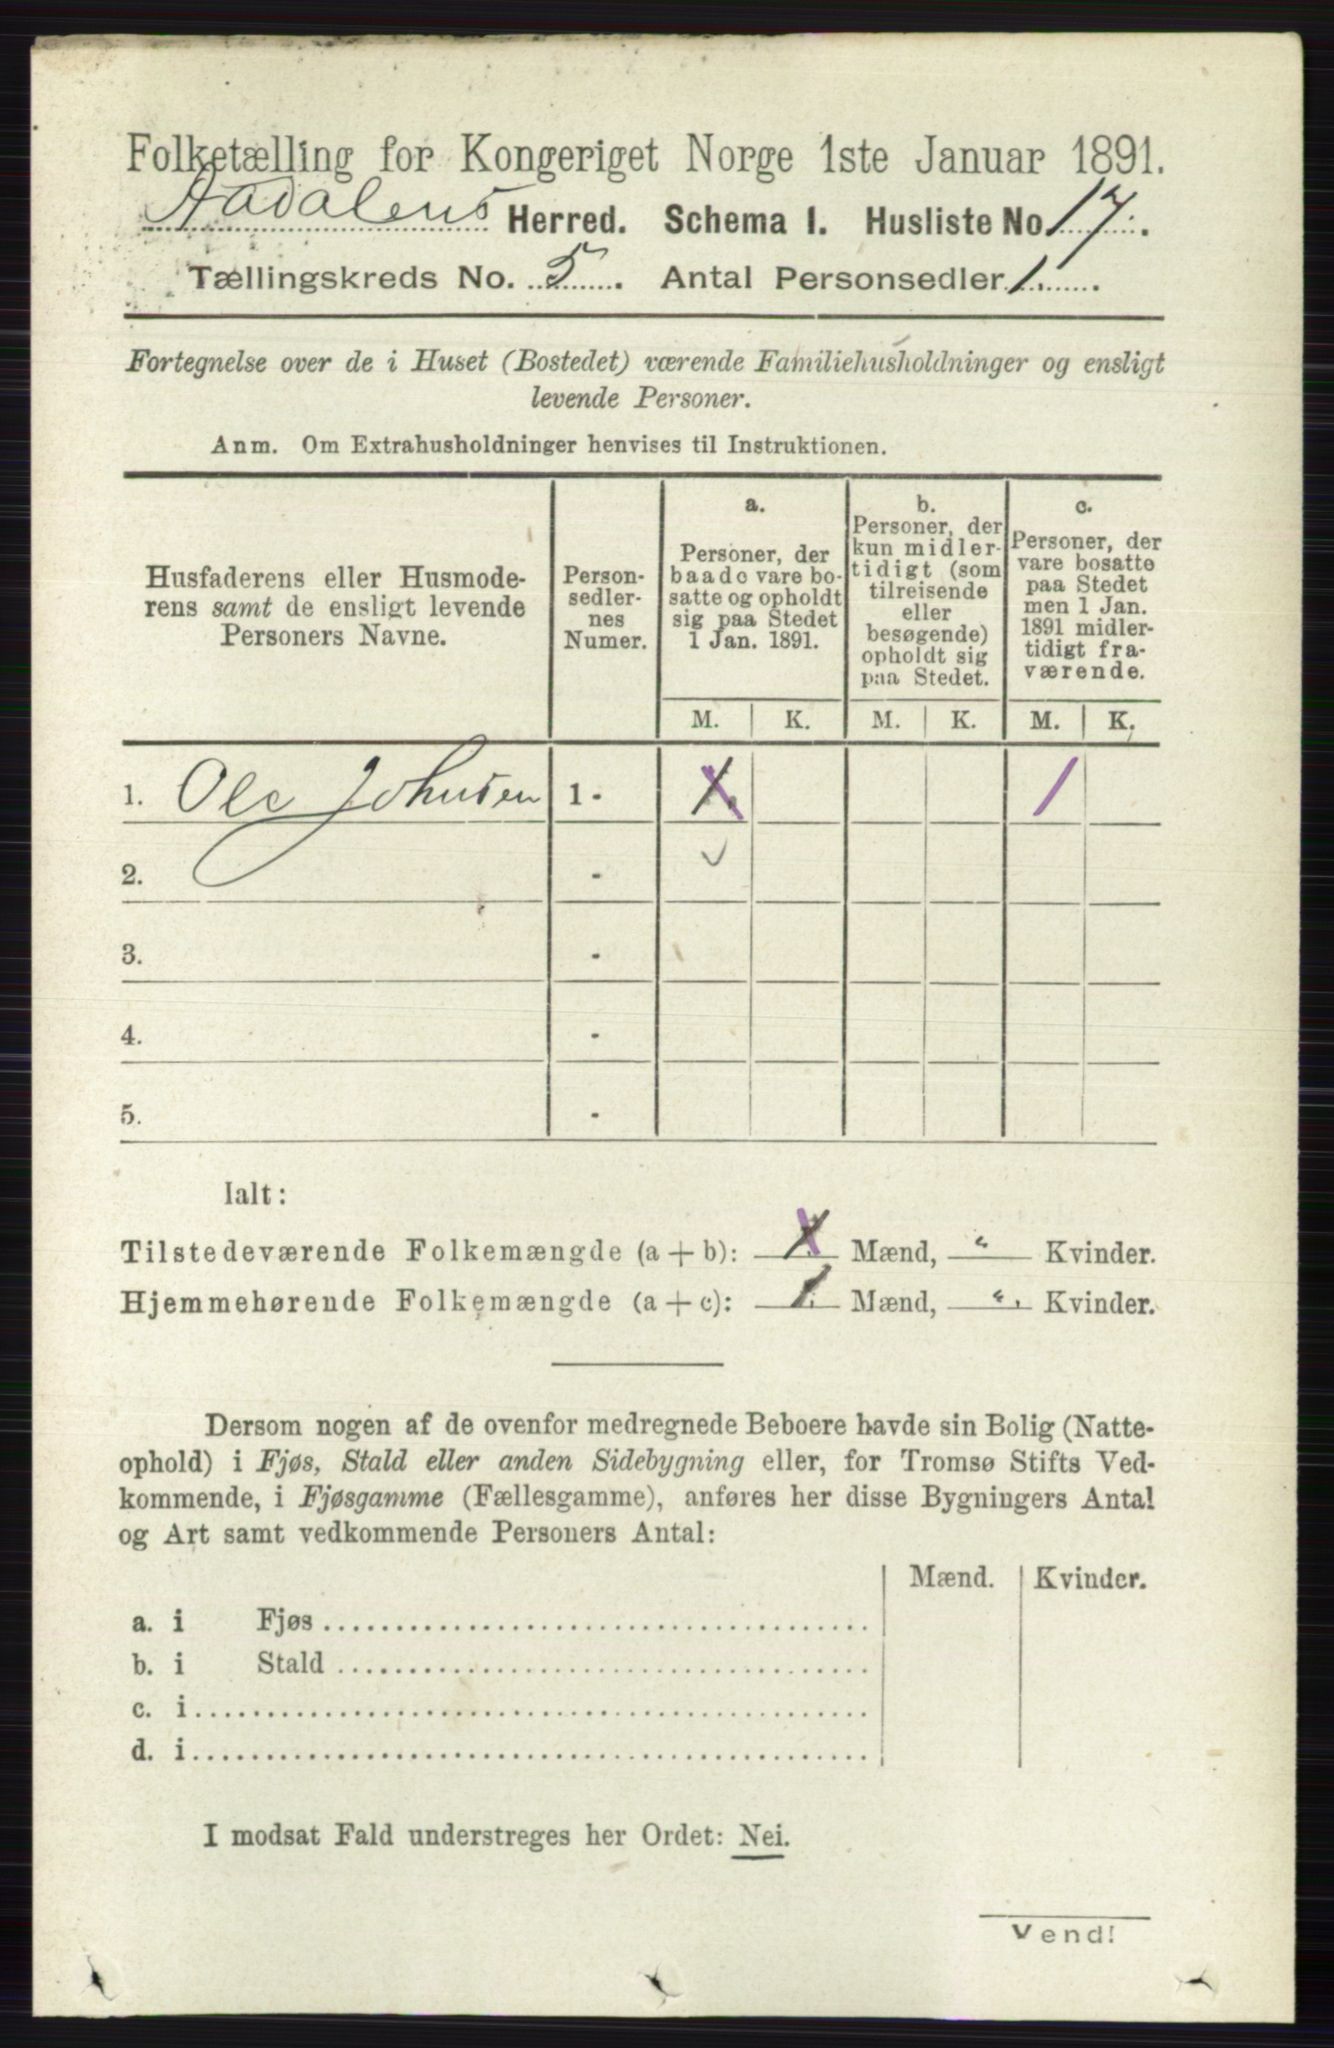 Folketælling for Kongeriget Norge 1ste Januar 1891.
Aadalens Herred. Schema I. Husliste No. 17.
Tællingskreds No. 5. Antal Personsedler 1.
Fortegnelse over de i Huset (Bostedet) værende Familiehusholdninger og ensligt
levende Personer.
Anm. Om Extrahusholdninger henvises til Instruktionen.
Husfaderens eller Husmode-
rens samt de ensligt levende
Personers Navne.
Person-
sedler-
nes
Numer.
a.
Personer, der
baade vare bo-
satte og opholdt
sig paa Stedet
1 Jan. 1891.
b.
Personer, der
kun midler-
tidigt (som
tilreisende
eller
besøgende)
opholdt sig
paa Stedet.
c.
Personer, der
vare bosatte
paa Stedet
men 1 Jan.
1891 midler-
tidigt fra-
værende.
M. K. M. K. M. K.
1. Ole Johnsen 1 - 1. 1
2. -
3. -
4. -
5. -
Ialt:
Tilstedeværende Folkemængde (a + b): 1. Mænd, " Kvinder.
Hjemmehørende Folkemængde (a + c): 1. Mænd, ". Kvinder.
Dersom nogen af de ovenfor medregnede Beboere havde sin Bolig (Natte-
ophold) i Fjøs, Stald eller anden Sidebygning eller, for Tromsø Stifts Ved-
kommende, i Fjøsgamme (Fællesgamme), anføres her disse Bygningers Antal
og Art samt vedkommende Personers Antal:
Mænd. Kvinder.
a. i Fjøs
b. i Stald
c. i
d. i
I modsat Fald understreges her Ordet: Nei.
Vend!